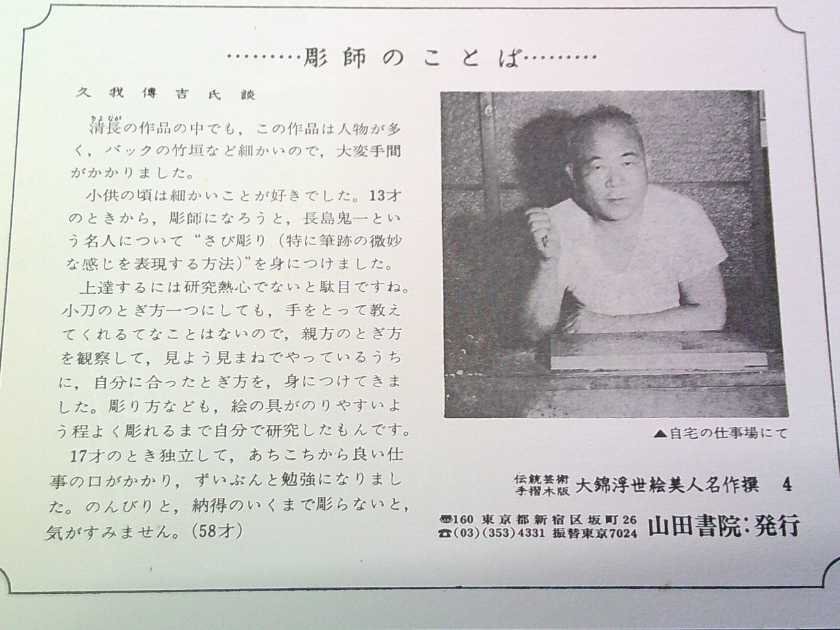 ………彫師のことば………
久我傳吉氏談
きよなが
清長の作品の中でも，この作品は人物が多
く，バックの竹垣など細かいので，大変手間
がかかりました。
小供の頃は細かいことが好きでした。13才
のときから，彫師になろうと，長島鬼一とい
う名人について“さび彫り（特に筆跡の微妙
な感じを表現する方法）”を身につけました。
上達するには研究熱心でないと駄目ですね。
小刀のとぎ方一つにしても，手をとって教え
てくれるてなことはないので，親方のとぎ方
を観察して，見よう見まねでやっているうち
に，自分に合ったとぎ方を，身につけてきま
した。彫り方なども，絵の具がのりやすいよ
う程よく彫れるまで自分で研究したもんです。
17才のとき独立して，あちこちから良い仕
事の口がかかり，ずいぶんと勉強になりまし
た。のんびりと，納得のいくまで彫らないと，
気がすみません。(58才)
▲自宅の仕事場にて
伝統芸術
手摺木版
大錦浮世絵美人名作撰 4
〠160 東京都新宿区坂町26
☎(03)(353)4331 振替東京7024
山田書院：発行